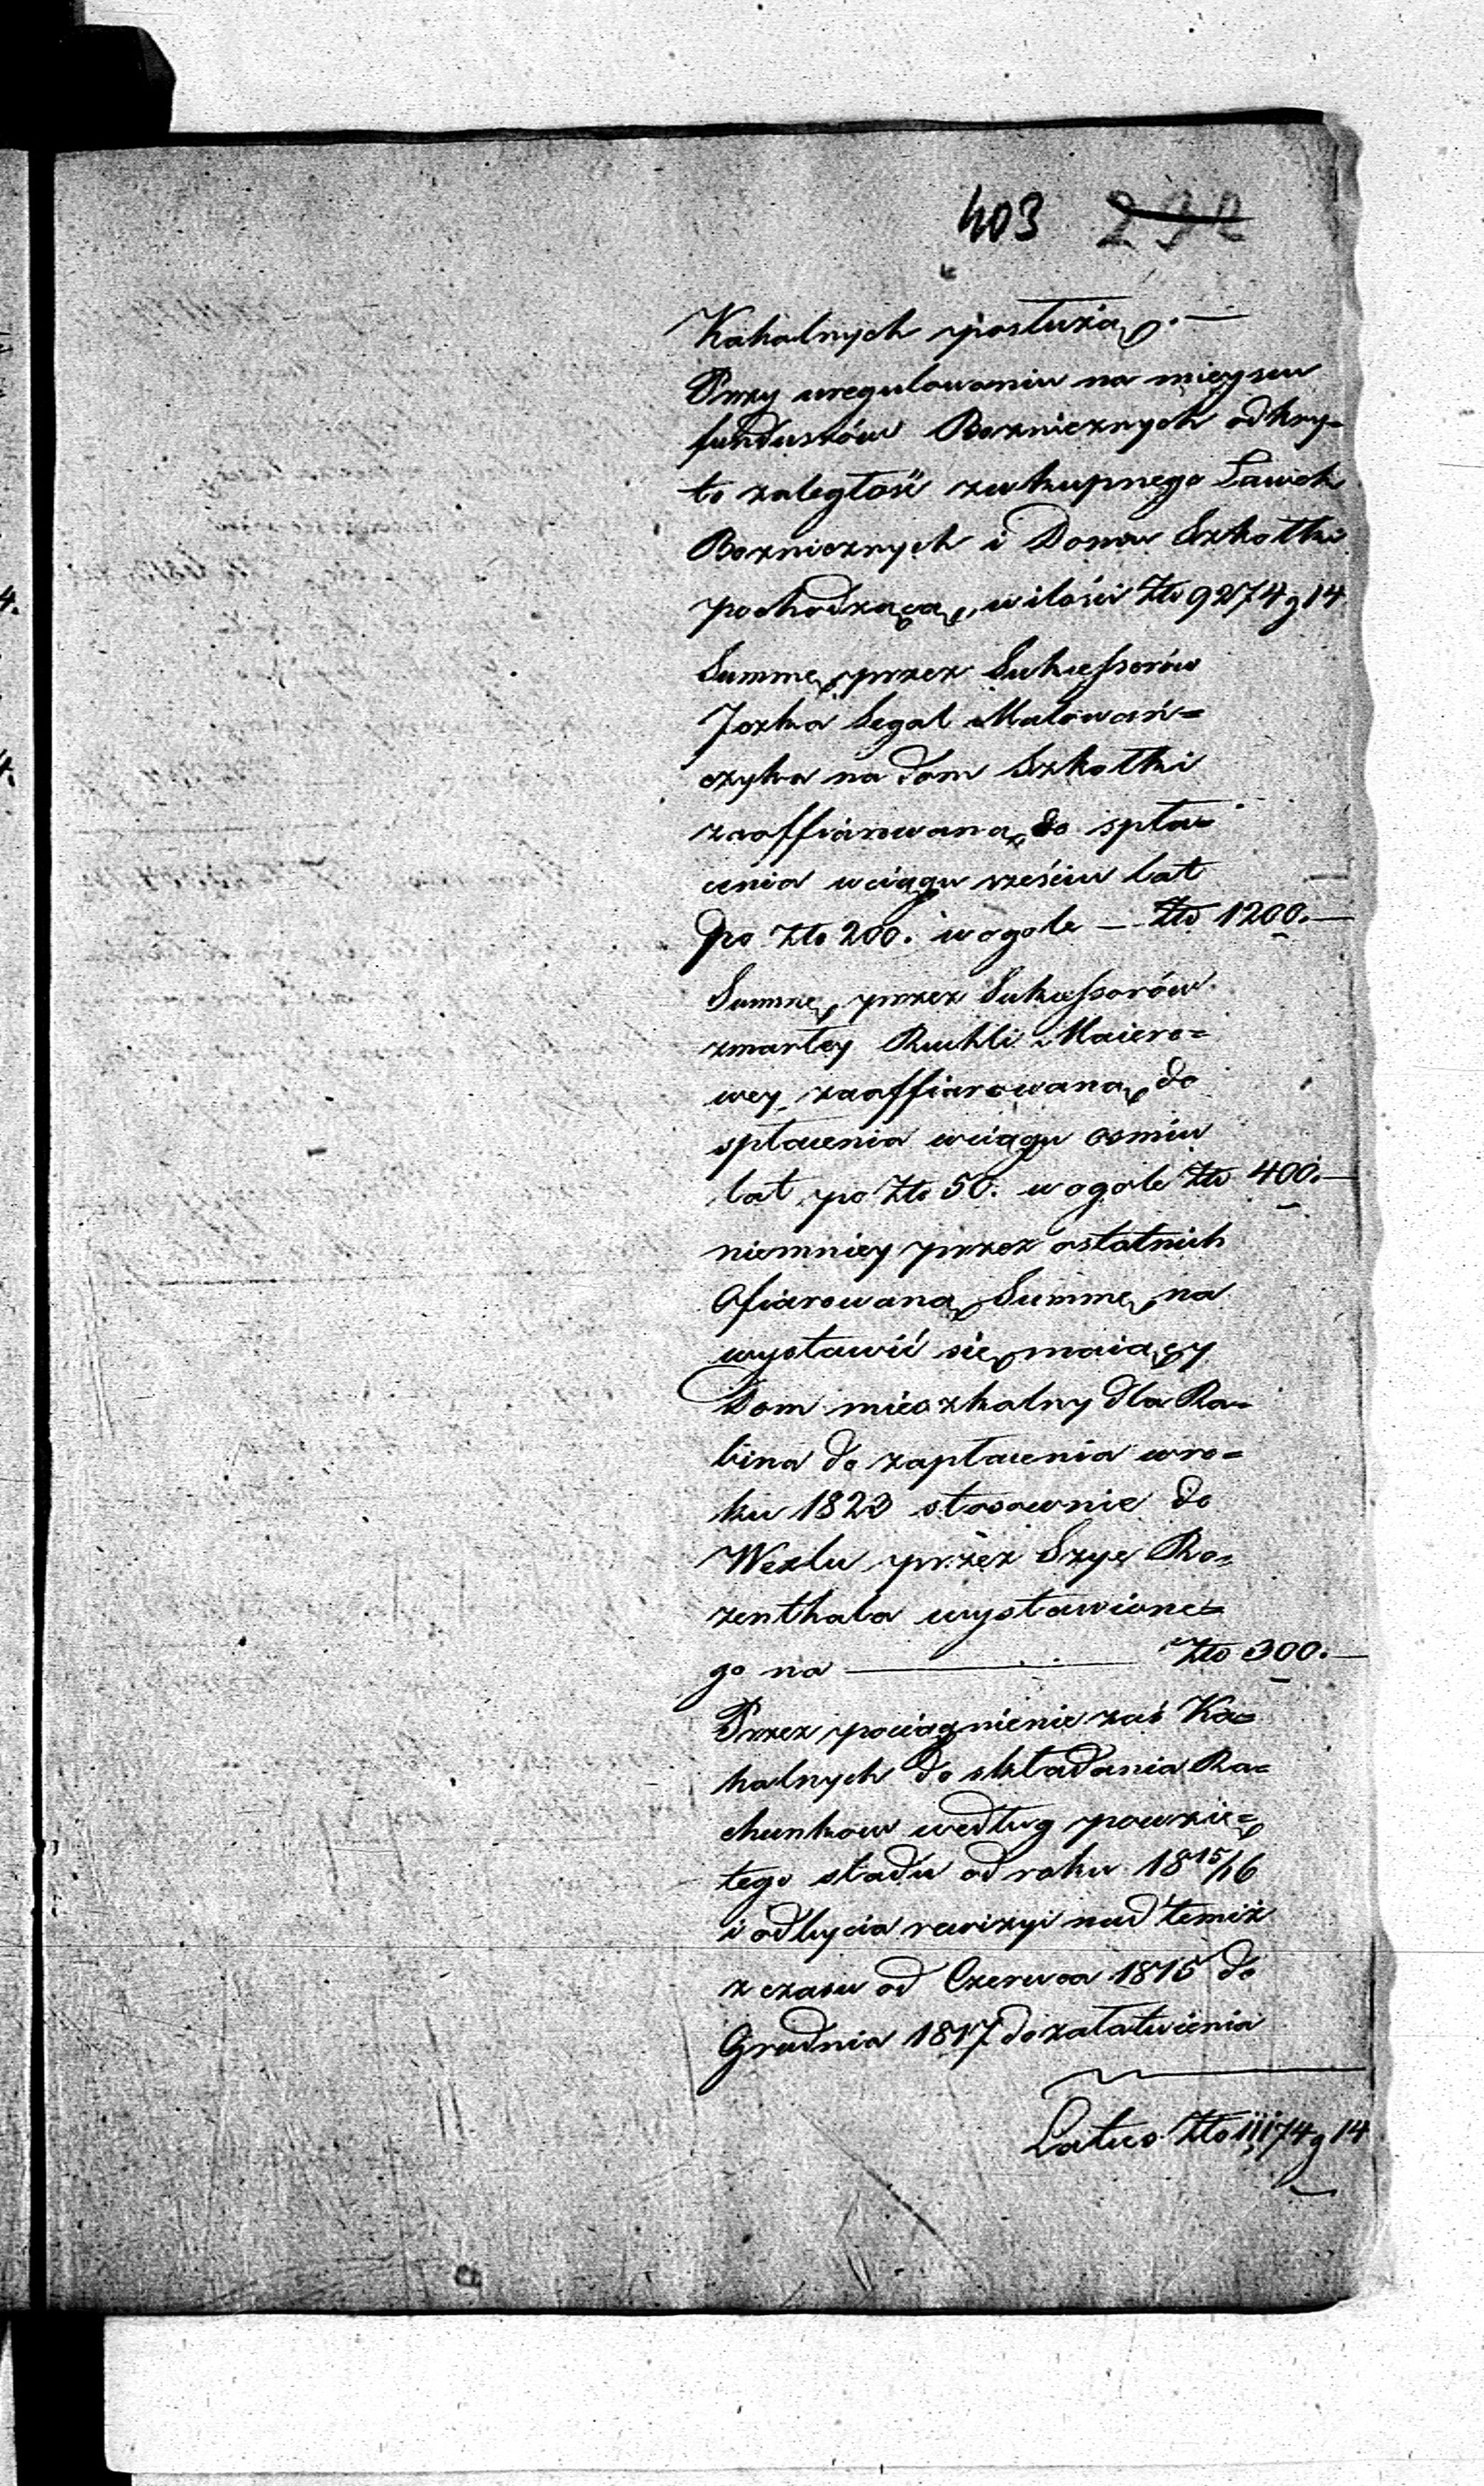 403 292
Kahalnych posłużą. —
Przy uregulowaniu na mieyscu
funduszów Boznicznych odkry-
to zaległość z wkupnego Ławek
Boznicznych i Domu Szkołki
pochodzącą, w ilości Złt 9274 g 14
Summę przez Sukcessorów
Joska Segal Malowań=
czyka na dom Szkołki
zaoffiarowaną do spła=
cenia wciągu sześciu lat
po Złt 200. w ogole — Złt 1200. —
Summę, przez Sukcessorów
zmarłey Ruchli Maiero=
wey zaoffiarowaną do
spłacenia wciągu osmiu
lat po Złt 50. w ogole Złt 400. —
niemniey przez ostatnich
Ofiarowaną Summę na
wystawić się maiący
Dom mieszkalny dla Ra=
bina do zapłacenia wro=
ku 1823 stosownie do
Wexlu przez Szyę Ro=
zenthala wystawione=
go na — Złt 300. —
Przez pociągnienie zaś Ka=
halnych do składania Ra=
chunkow według powzię=
tego sładu od roku 1815/16
i odbycia rewizyi nad temiż
z czasu od Czerwca 1815 do
Grudnia 1817 do załatwienia
Latus Złt 11174 g 14